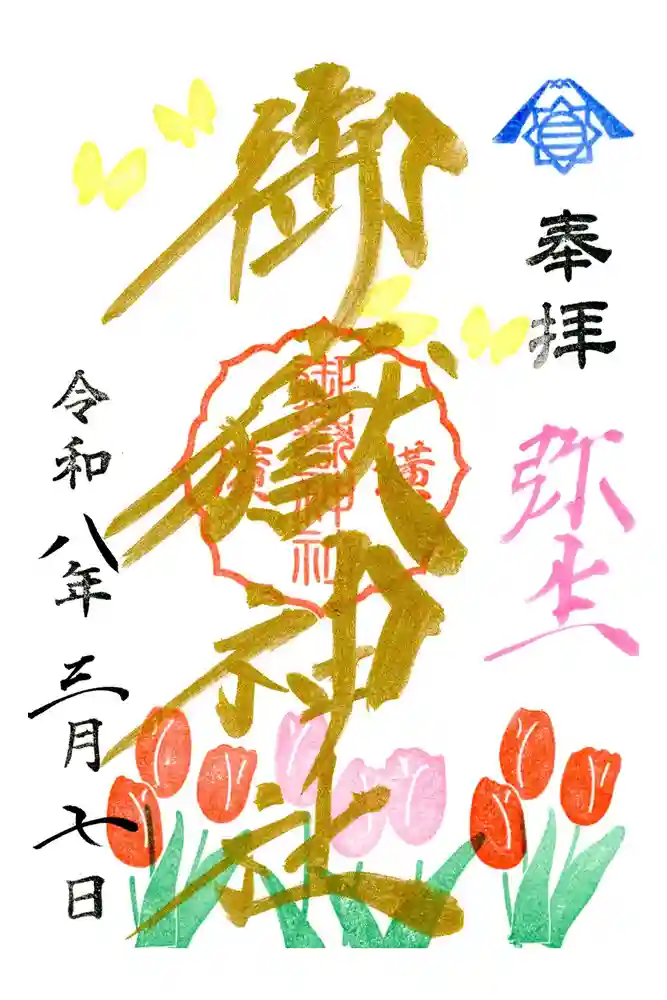 奉拝
弥生
御嶽神社
横濱
御嶽神社
令和八年三月七日